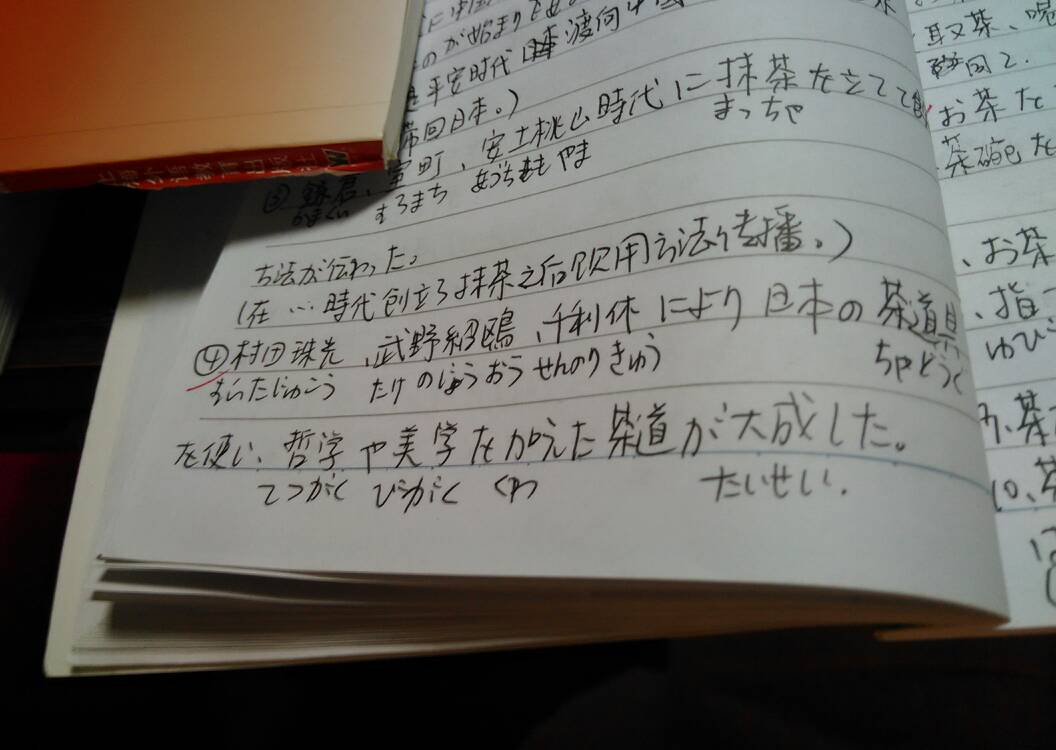 のが始まりとめ
平安時代 渡向中国
帯回日本。)
③ 鎌倉、室町、安土桃山時代に抹茶を立てて
かまくら むろまち あづちももやま まっちゃ
方法が伝わった。
(在…時代創立了抹茶之后飲用方法传播。)
④村田珠光、武野紹鴎、千利休により日本の茶道具
むらたじゅこう たけのじょうおう せんのりきゅう ちゃどうぐ
を使い、哲学や美学を加えた茶道が大成した。
てつがく びがく くわ たいせい.
取茶、
お茶を
茶碗を
、お茶
、指
ゆび
9、茶
10、茶
上海外语教育出版社